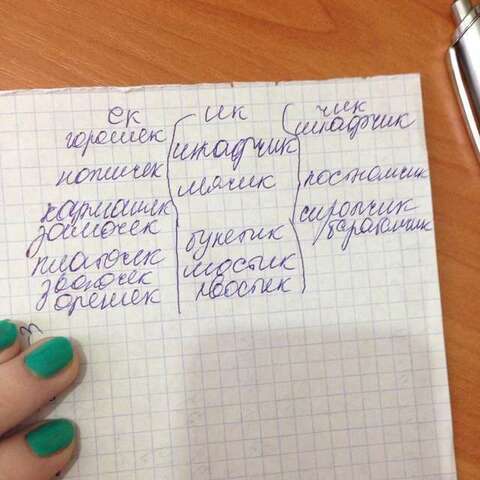 ек
горошек
ножичек
кармашек
замочек
платочек
звоночек
орешек
ик
шкафчик
мячик
букетик
мостик
хвостик
чик
шкафчик
костюмчик
сиропчик